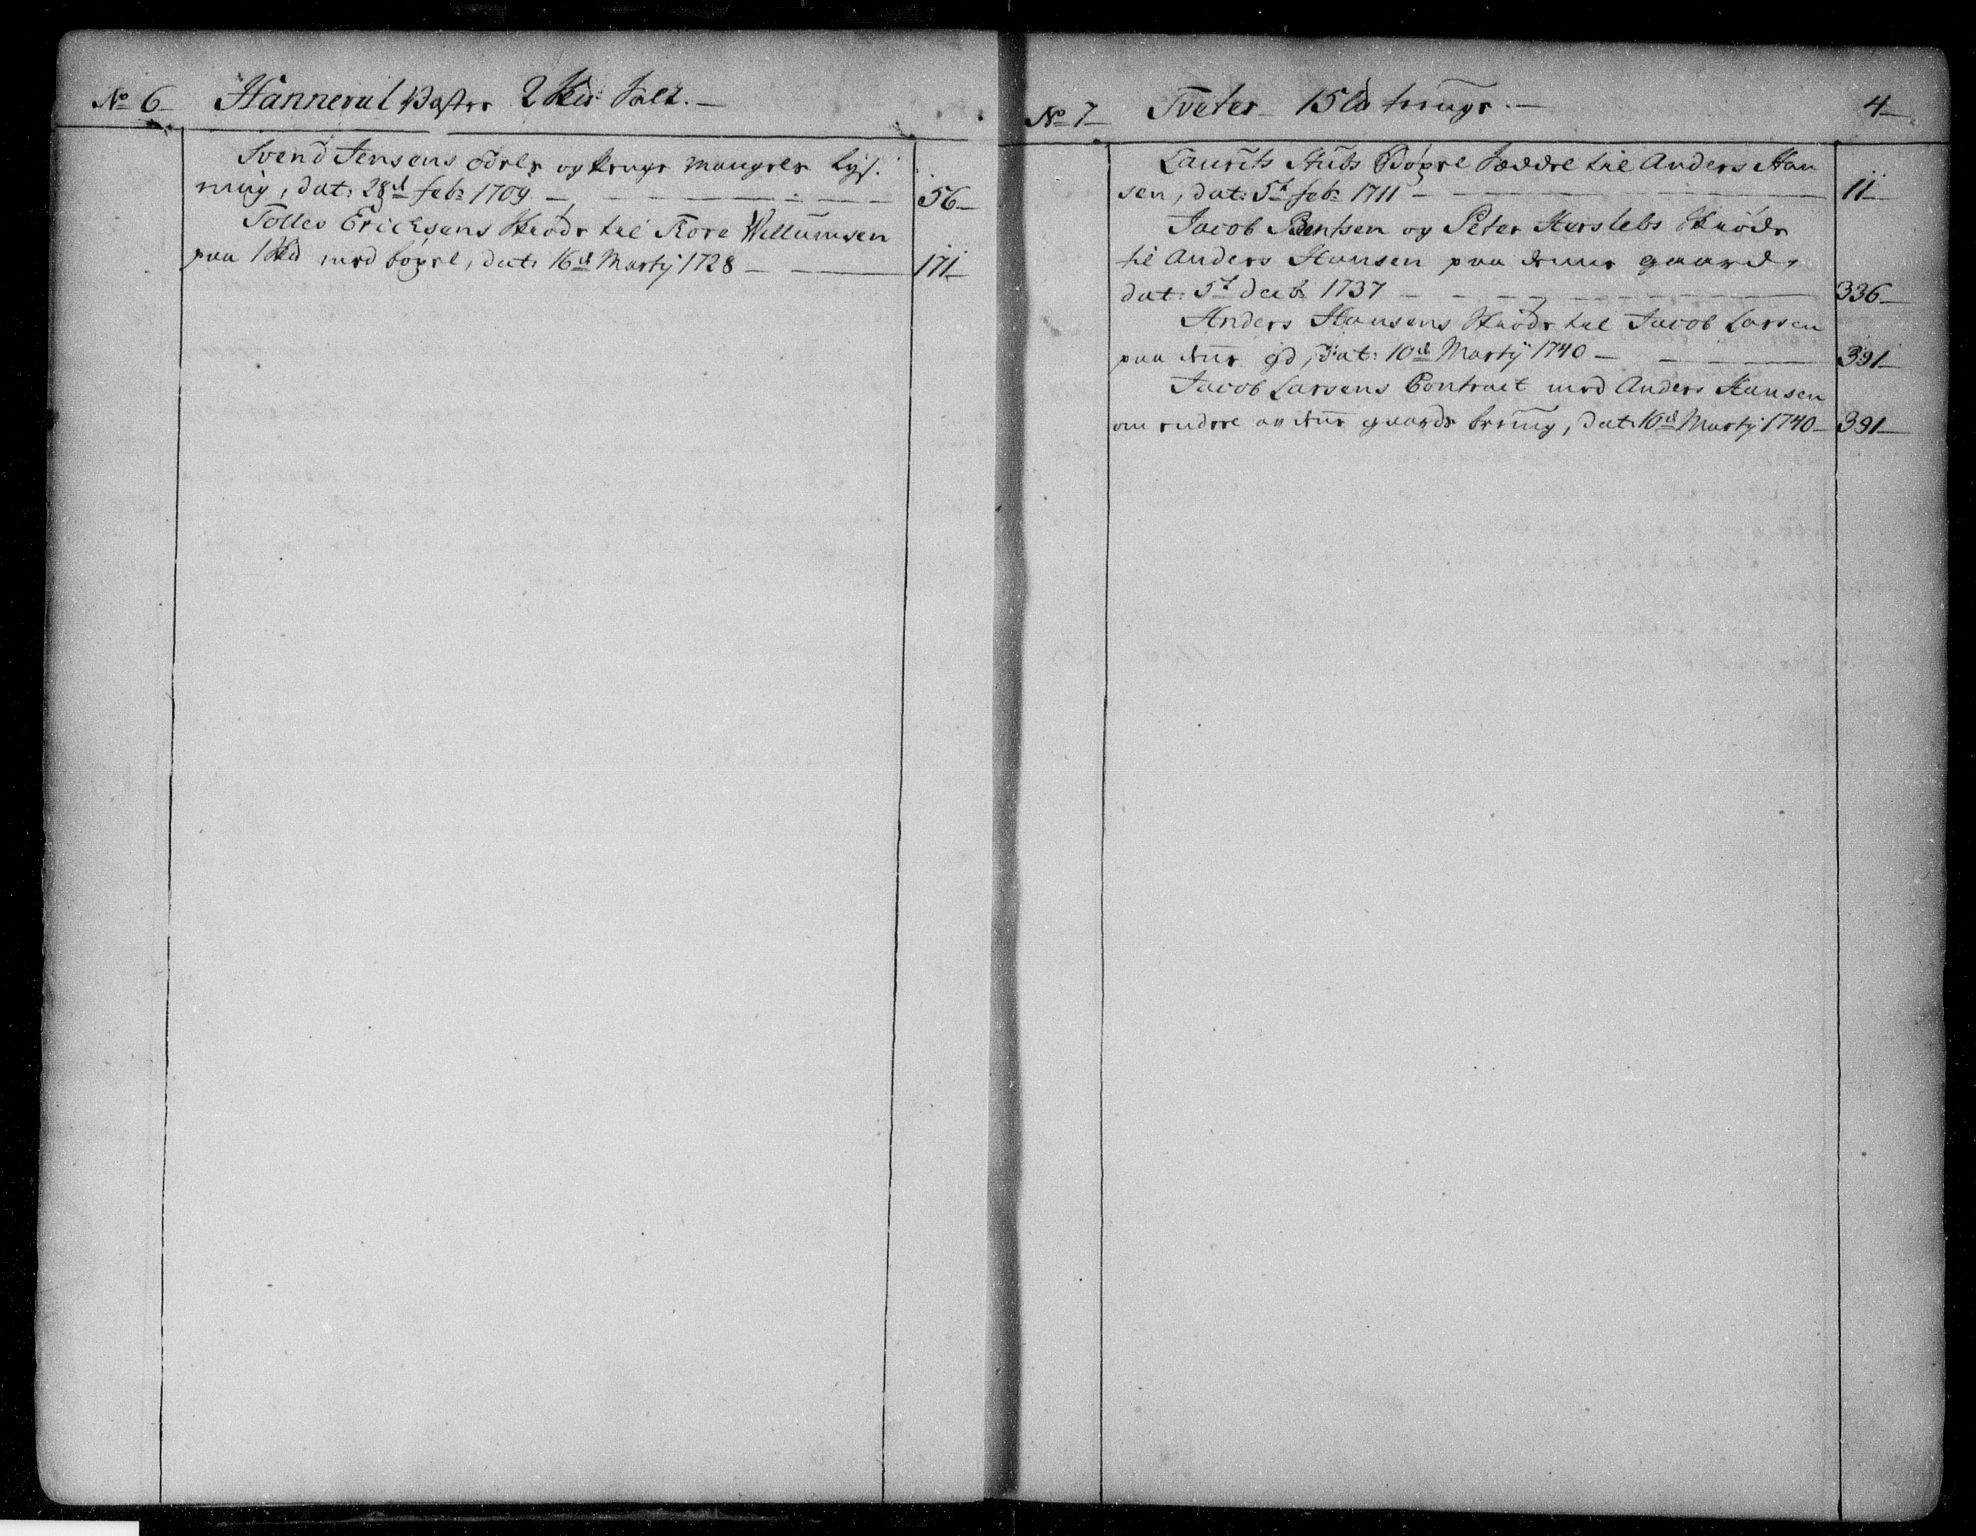 No 6 Hannerul Vestre 2 Skd Salt.
Svend Jensens Odels og penge mangels lys.
ning, dat: 28d feb: 1709 56
Tolles Ericksens Skiøde til Tore Willumsen
paa 1 Skd med bøxel, dat: 16d Martij 1728 171
No 7 Tveter 15 tunge 4
Laurits Stubs Bøxel Seddel til Anders Han
sen, dat: 5t feb: 1711 11
Jacob Bentsen og Peter Herslebs Skiøde
til Anders Hansen paa denne gaard,
dat: 5t decb 1737 336
Anders Hansens Skiøde til Jacob Larsen
paa denne gd, Dat: 10d Martij 1740 391
Jacob Larsens Contract med Anders Hansen
om endeel av denne gaards, dat: 16d Martij 1740 391